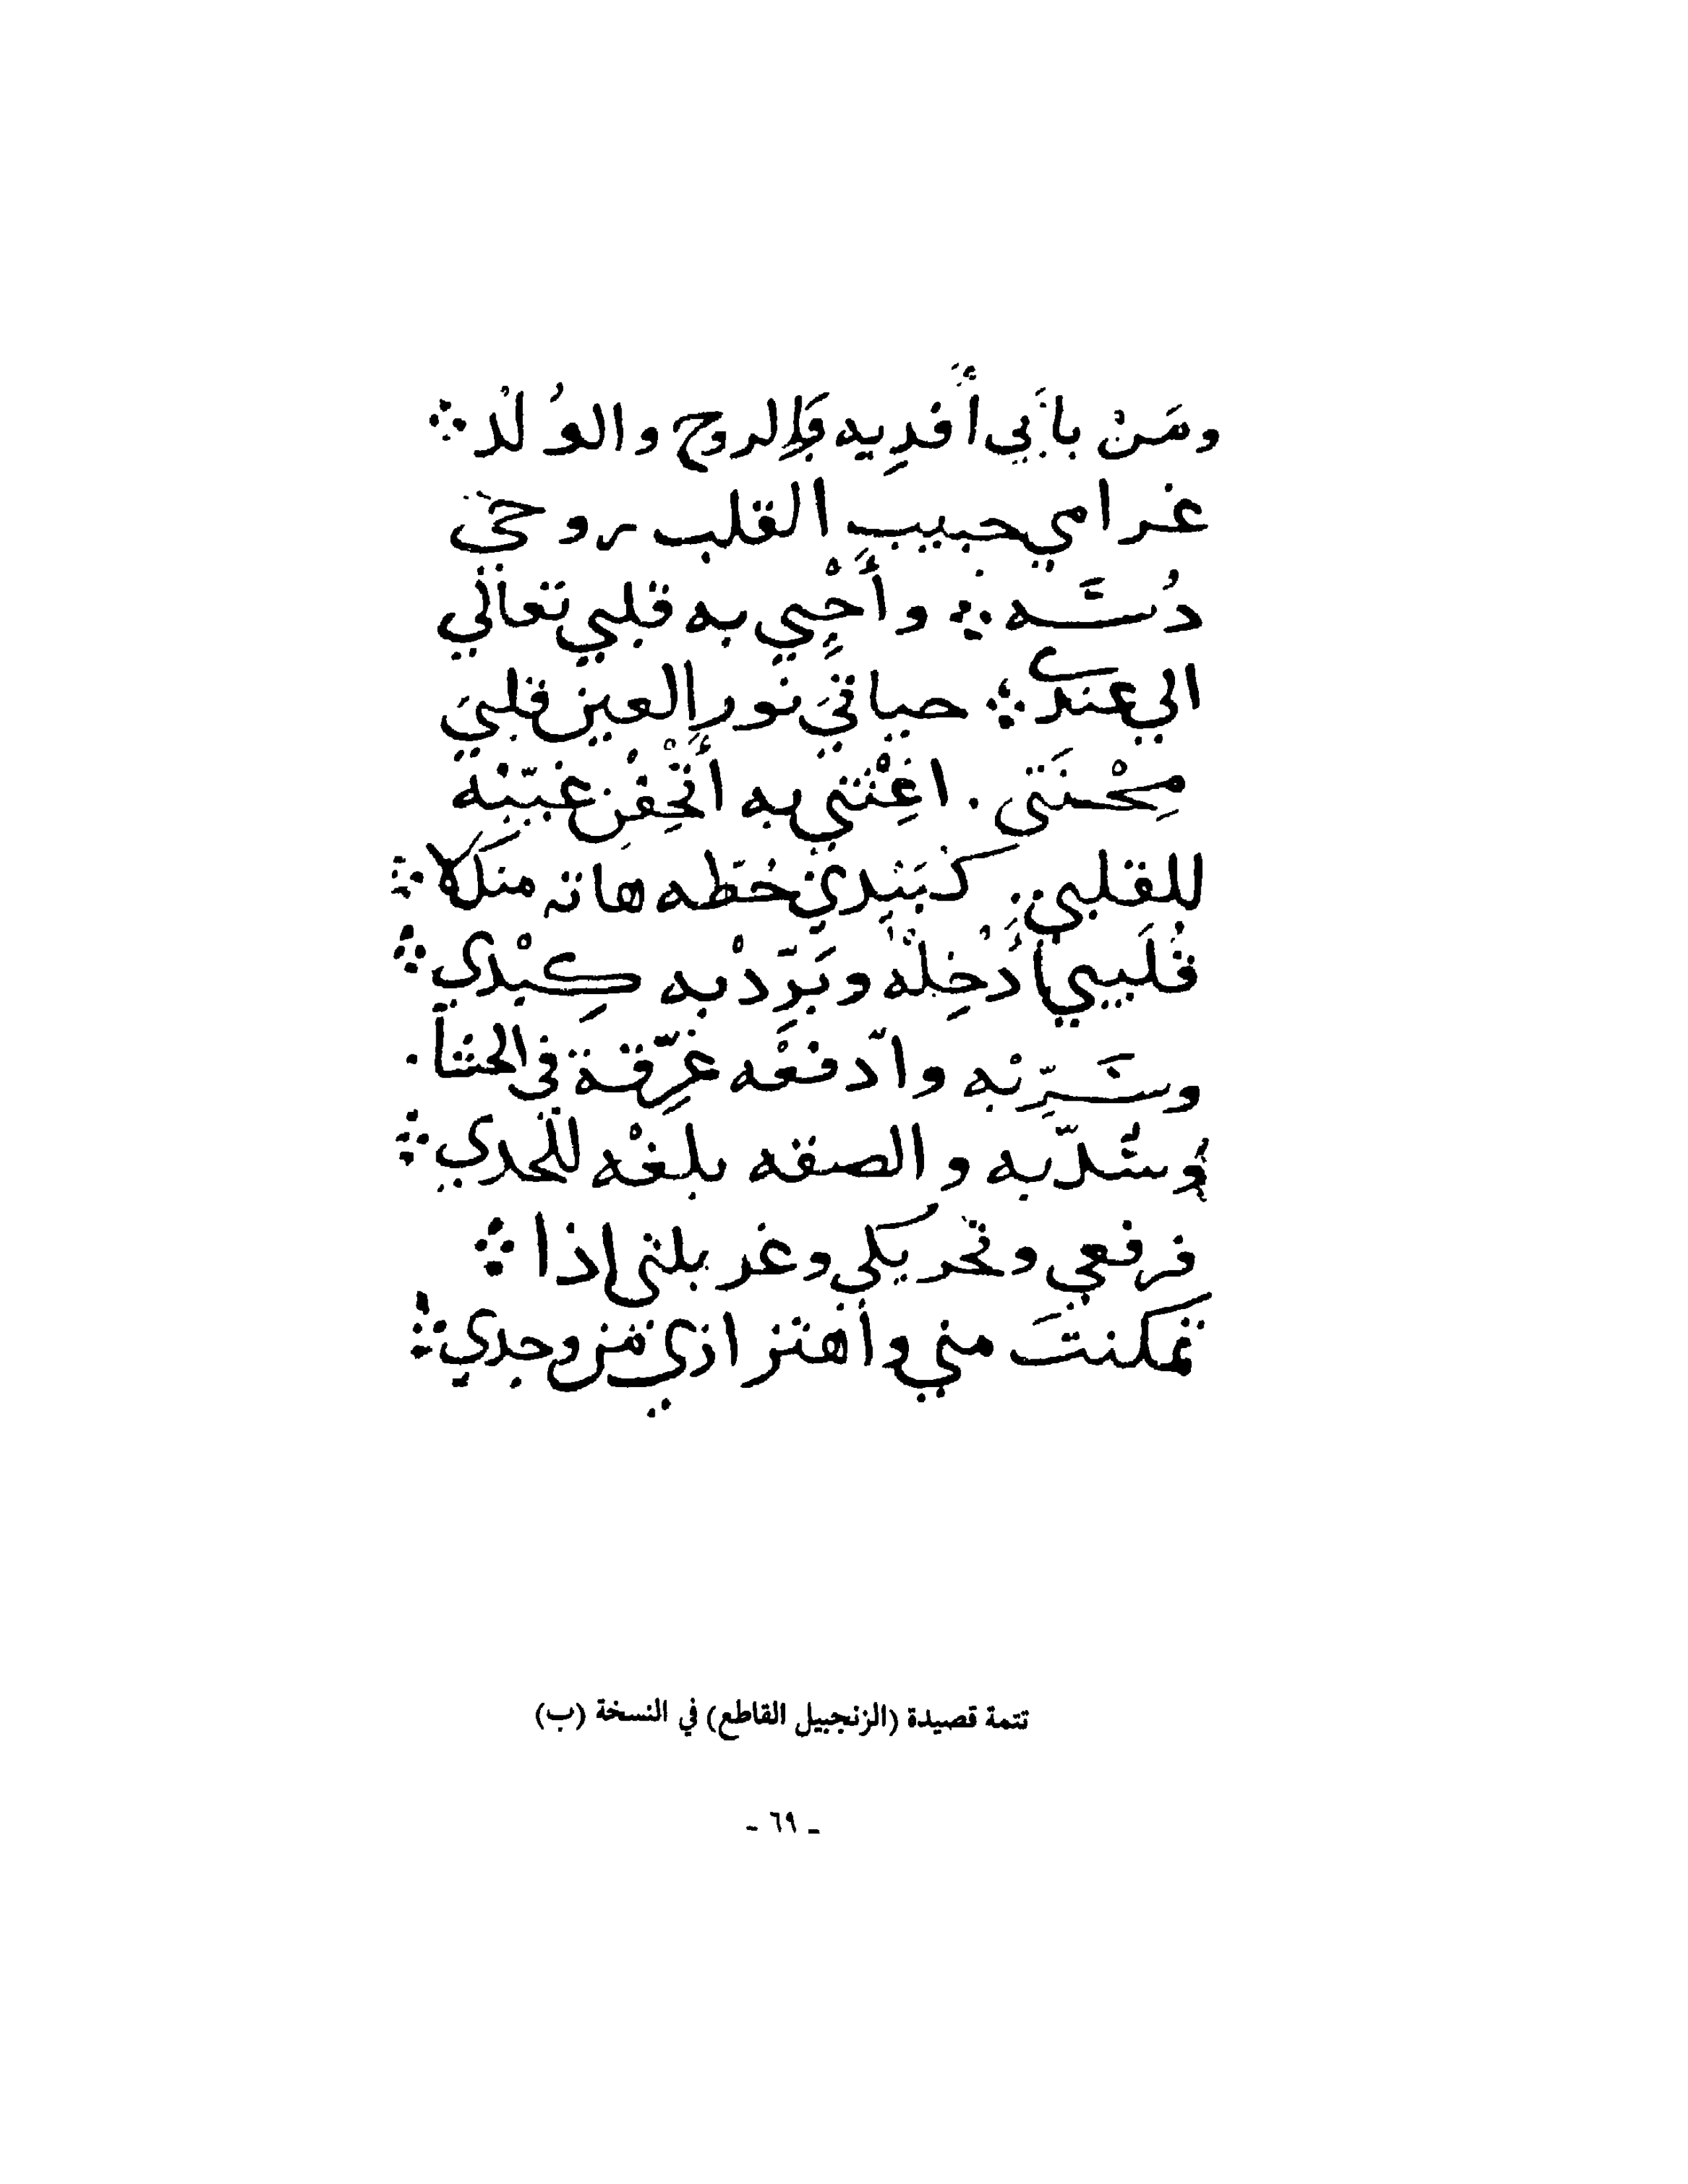 ومَنْ بأبي أَفدِيه بالروح والوُلْد ⁘
غرامي حبيب القلب روحي
دُسّه ⁘ وأَحْيِي به قلبي تعالي
الي عندي ⁘ حياتي نور العين قلبي
مِحْنَتي . اغِثْني به أَتْحِفْن غيّبْه
للقلبي ⁘ كبَيْدي حُطه هاته منك ⁘
قُلَيبي أَدْخِلْهُ وبَرّدْ به كِبْدي ⁘
وسَرّبْه وادّفعْه غرّقه في الحشا .
وشدّ به والصقه بلغْه للحدي ⁘
فرفعي وتحريكي وغربلتي إذا ⁘
تمكنتَ مني وأهتزازي من وجدي ⁘
تتمة قصيدة (الزنجبيل القاطع) في النسخة (ب)
- ٦٩ -